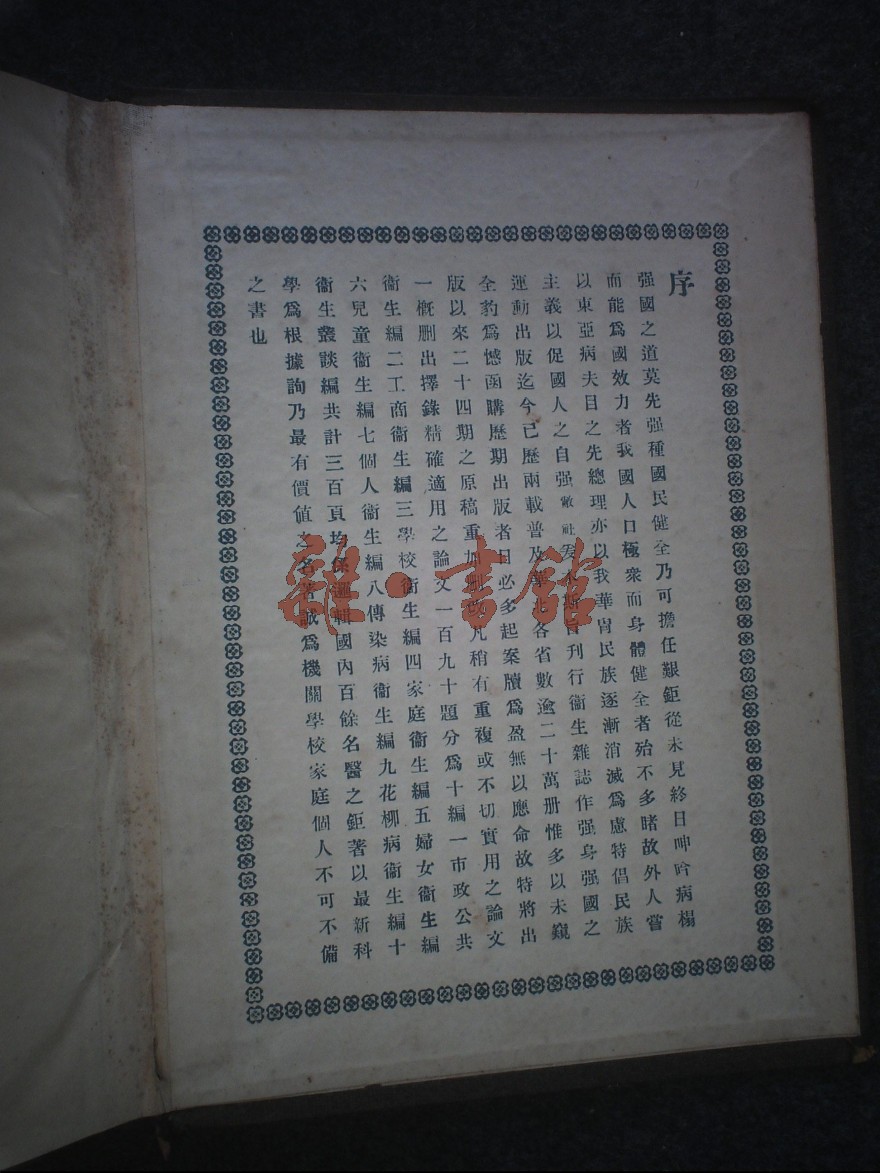 序
强國之道莫先强種國民健全乃可擔任艱鉅從未見終日呻吟病榻
而能爲國效力者我國人口極衆而身體健全者殆不多睹故外人嘗
以東亞病夫目之先總理亦以我華胄民族逐漸消滅爲慮特倡民族
主義以促國人之自强敝社爰本斯旨刊行衞生雜誌作强身强國之
運動出版迄今已歷兩載普及各省數逾二十萬册惟多以未窺
全豹爲憾函購歷期出版者日必多起案牘爲盈無以應命故特將出
版以來二十四期之原稿重加删凡稍有重複或不切實用之論文
一概删出擇錄精確適用之論文一百九十題分爲十編一市政公共
衞生編二工商衞生編三學校衞生編四家庭衞生編五婦女衞生編
六兒童衞生編七個人衞生編八傳染病衞生編九花柳病衞生編十
衞生叢談編共計三百頁均係選輯國內百餘名醫之鉅著以最新科
學爲根據詢乃最有價値之名著誠爲機關學校家庭個人不可不備
之書也
雜·書館